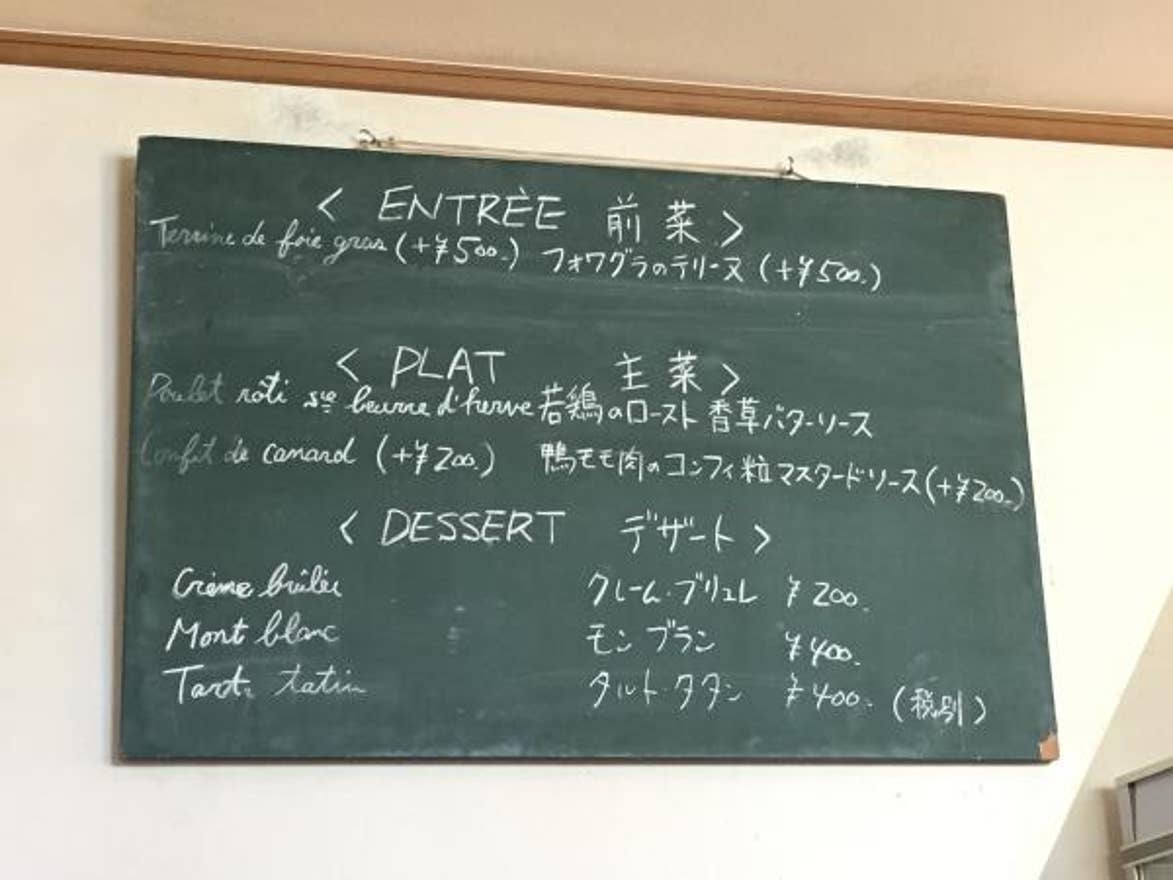 < ENTRÈE 前菜 >
Terrine de foie gras (+¥500.) フォワグラのテリーヌ (+¥500.)
< PLAT 主菜 >
Poulet rôti sce beurre d'herve 若鶏のロースト 香草バターソース
Confit de canard (+¥200.) 鴨モモ肉のコンフィ粒マスタードソース(+¥200.)
< DESSERT デザート >
Crème brûlée クレーム・ブリュレ ¥200.
Mont blanc モンブラン ¥400.
Tarte tatin タルト・タタン ¥400. (税別)